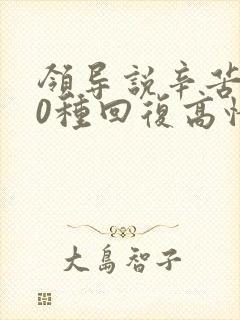 領导説辛苦
0種回復高情
大島智子